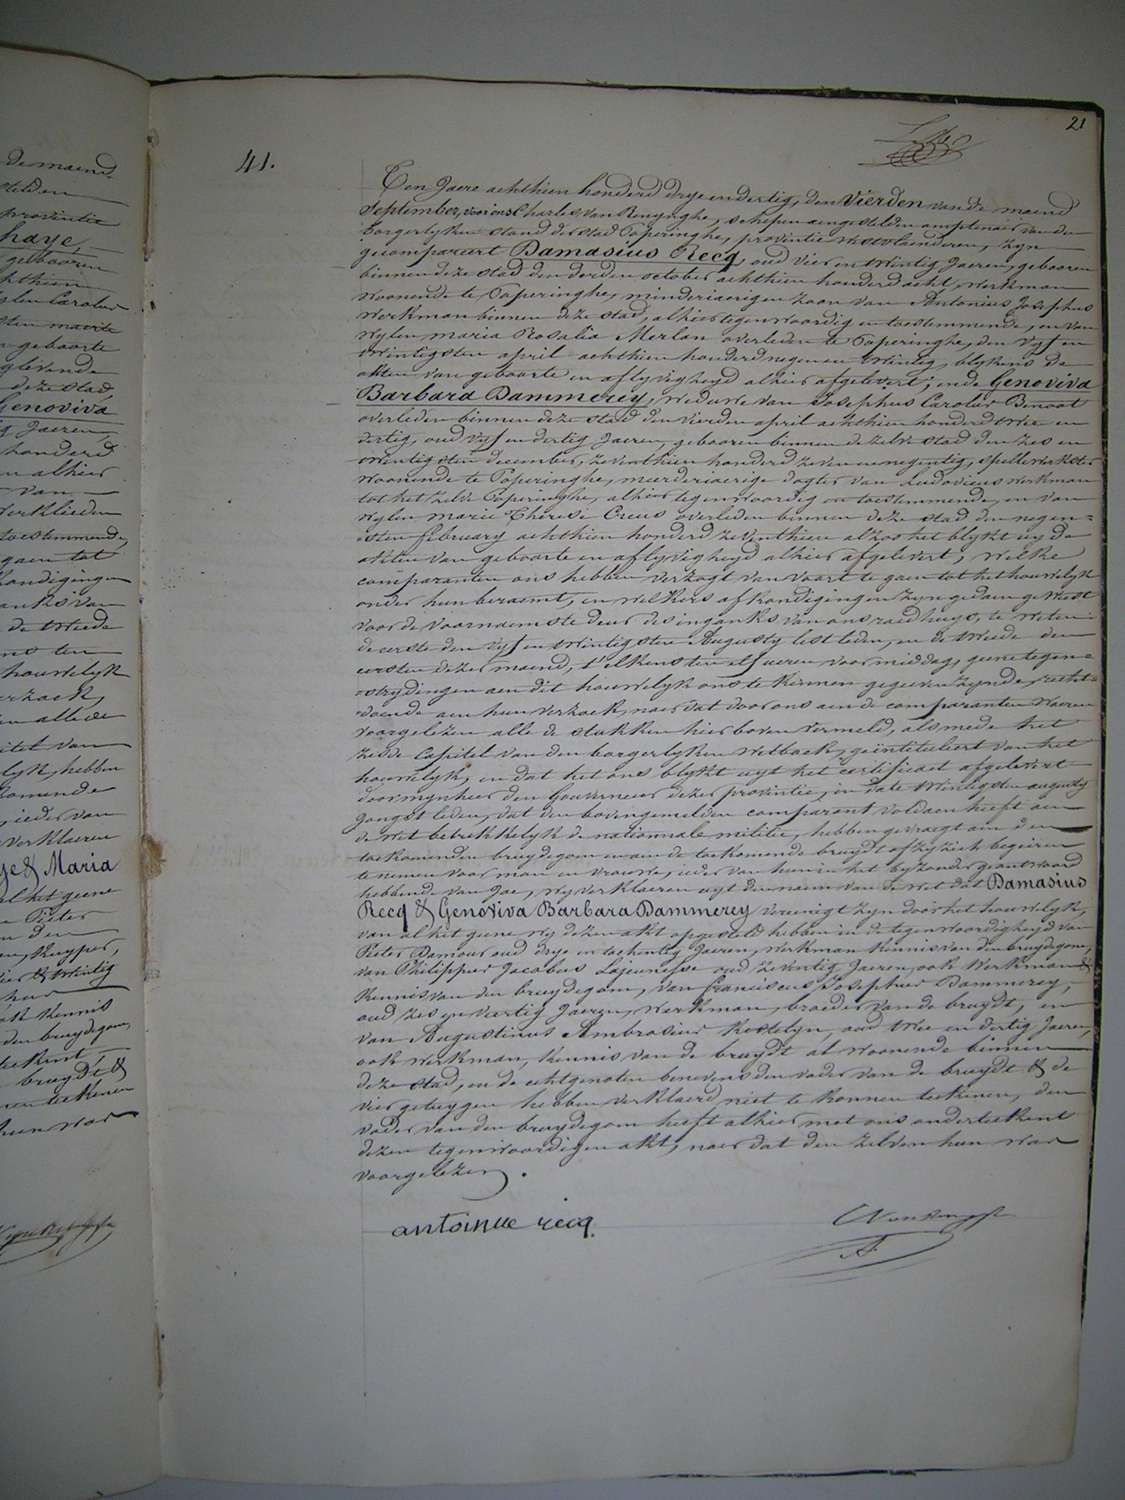 21
41.
Ten Jaere achthien honderd drye en dertig, den Vierden van de maend
September, voor ons Charles van Renynghe, schepen aengestelden amptenaer van den
borgerlyken stand der stad Poperinghe, provintie westvlaenderen, zyn
gecompareert Damasius Recq, oud vier en twintig Jaeren, gebooren
binnen deze stad den derden october achthien honderd acht, werkman
woonende te Poperinghe, minderjaerigen zoon van Antonius Josephus
werkman binnen deze stad, alhier tegenwoordig en toestemmende, en van
wylen maria Rosalia Merlan overleden te Poperinghe, den vyf en
twintigsten april achthien honderd negen en twintig, blykens de
akten van geboorte en aflyvigheyd alhier afgelevert; ende Genoviva
Barbara Dammerey, weduwe van Josephus Carolus Benoot
overleden binnen deze stad den vierden april achthien honderd twee en
dertig, oud vyf en dertig Jaeren, gebooren binnen de zelve stad den zes en
twintigsten december, zeventhien honderd zeven en negentig, spellewerkster
woonende te Poperinghe, meerderjaerige dogter van Ludovicus werkman
tot het zelve Poperinghe, alhier tegenwoordig en toestemmende, en van
wylen marie Therese Creus overleden binnen deze stad den negen-
sten february achthien honderd zeventhien alzoo het blykt uyt de
akten van geboorte en aflyvigheyd alhier afgelevert, welke
comparanten ons hebben verzogt van voort te gaen tot het houwelyk
onder hun beraemt, en welkers afkondigingen zyn gedaen geweest
voor de voornaemste deur des inganks van ons raedhuys, te weten
de eerste den vyf en twintigsten Augusty lest leden, en de tweede den
eersten dezer maend, t'elkens ten elf ueren voormiddag, geene tegen-
strydingen aen dit houwelyk ons te kennen gegeven zynde, recht
doende aen hun verzoek, naer dat door ons aen de comparanten waeren
voorgelezen alle de stukken hier boven vermeld, alsmede het
zesde Capitel van den borgerlyken wetboek, geïntituleert van het
houwelyk, en dat het ons blykt uyt het certificaet afgelevert
door mynheer den Gouverneur dezer provintie, in date twintigsten augusty
jongst leden, dat den bovengemelden comparant voldaen heeft aen
de wet betrekkelyk de nationnale militie, hebben gevraegt aen den
toekomenden bruydegom en aen de toekomende bruydt of zy zich begeiren
te nemen voor man en vrouwe, ieder van hun in het byzonder geantwoord
hebbende van Jae, wy verklaeren uyt den naem van de wet dat Damasius
Recq & Genoviva Barbara Dammerey vereenigt zyn door het houwelyk,
van al het geene wy dezen akt opgesteld hebben in de tegenwoordigheyd van
Pieter Damour oud drye en tachentig Jaeren, werkman kennis van den bruydegom,
van Philippus Jacobus Lajeunesse oud zeventig Jaeren, ook werkman &
kennis van den bruydegom, van franciscus Josephus Dammerey,
oud zes en veertig Jaeren, werkman, broeder van de bruydt, en
van Augustinus Ambrosius Kestelyn, oud twee en dertig Jaeren,
ook werkman, kennis van de bruydt al woonende binnen
deze stad, en de echtgenoten benevens den vader van de bruydt & de
vier getuygen hebben verklaerd niet te konnen teekenen, den
vader van den bruydegom heeft alhier met ons onderteekent
dezen tegenwoordigen akt, naer dat den zelven hun was
voorgelezen.
antoinne recq.